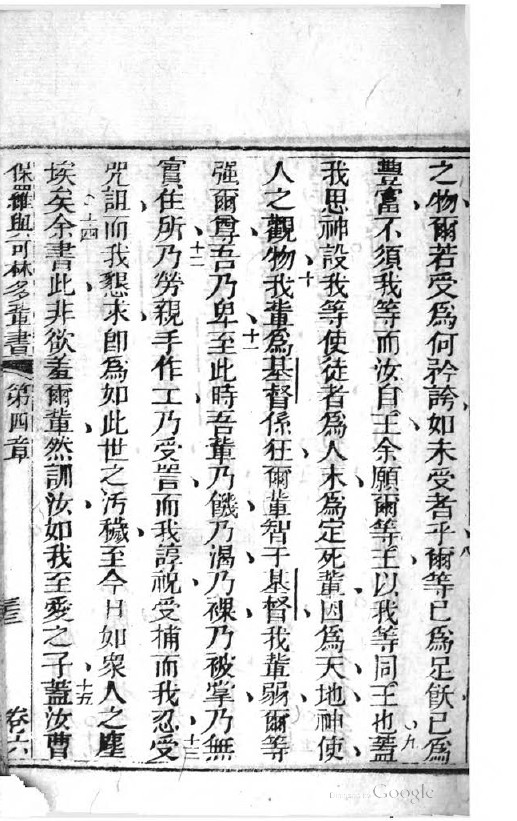 之物爾若受爲何矜誇如未受者乎八爾等已爲足飲已爲
豐富不須我等而汝自王余願爾等王以我等同王也九蓋
我思神設我等使徒者爲人末爲定死輩因爲天地神使
人之觀物十我輩爲基督係狂爾輩智于基督我輩弱爾等
强爾尊吾乃卑十一至此時吾輩乃饑乃渴乃裸乃被掌乃無
實住所十二乃勞親手作工乃受詈而我諄祝受捕而我忍受十三
咒詛而我懇求卽爲如此世之汚穢至今日如衆人之塵
埃矣十四余書此非欲羞爾輩然訓汝如我至愛之子十五蓋汝曹
保羅與可林多輩書 第四章 卷六
Digitized by Google